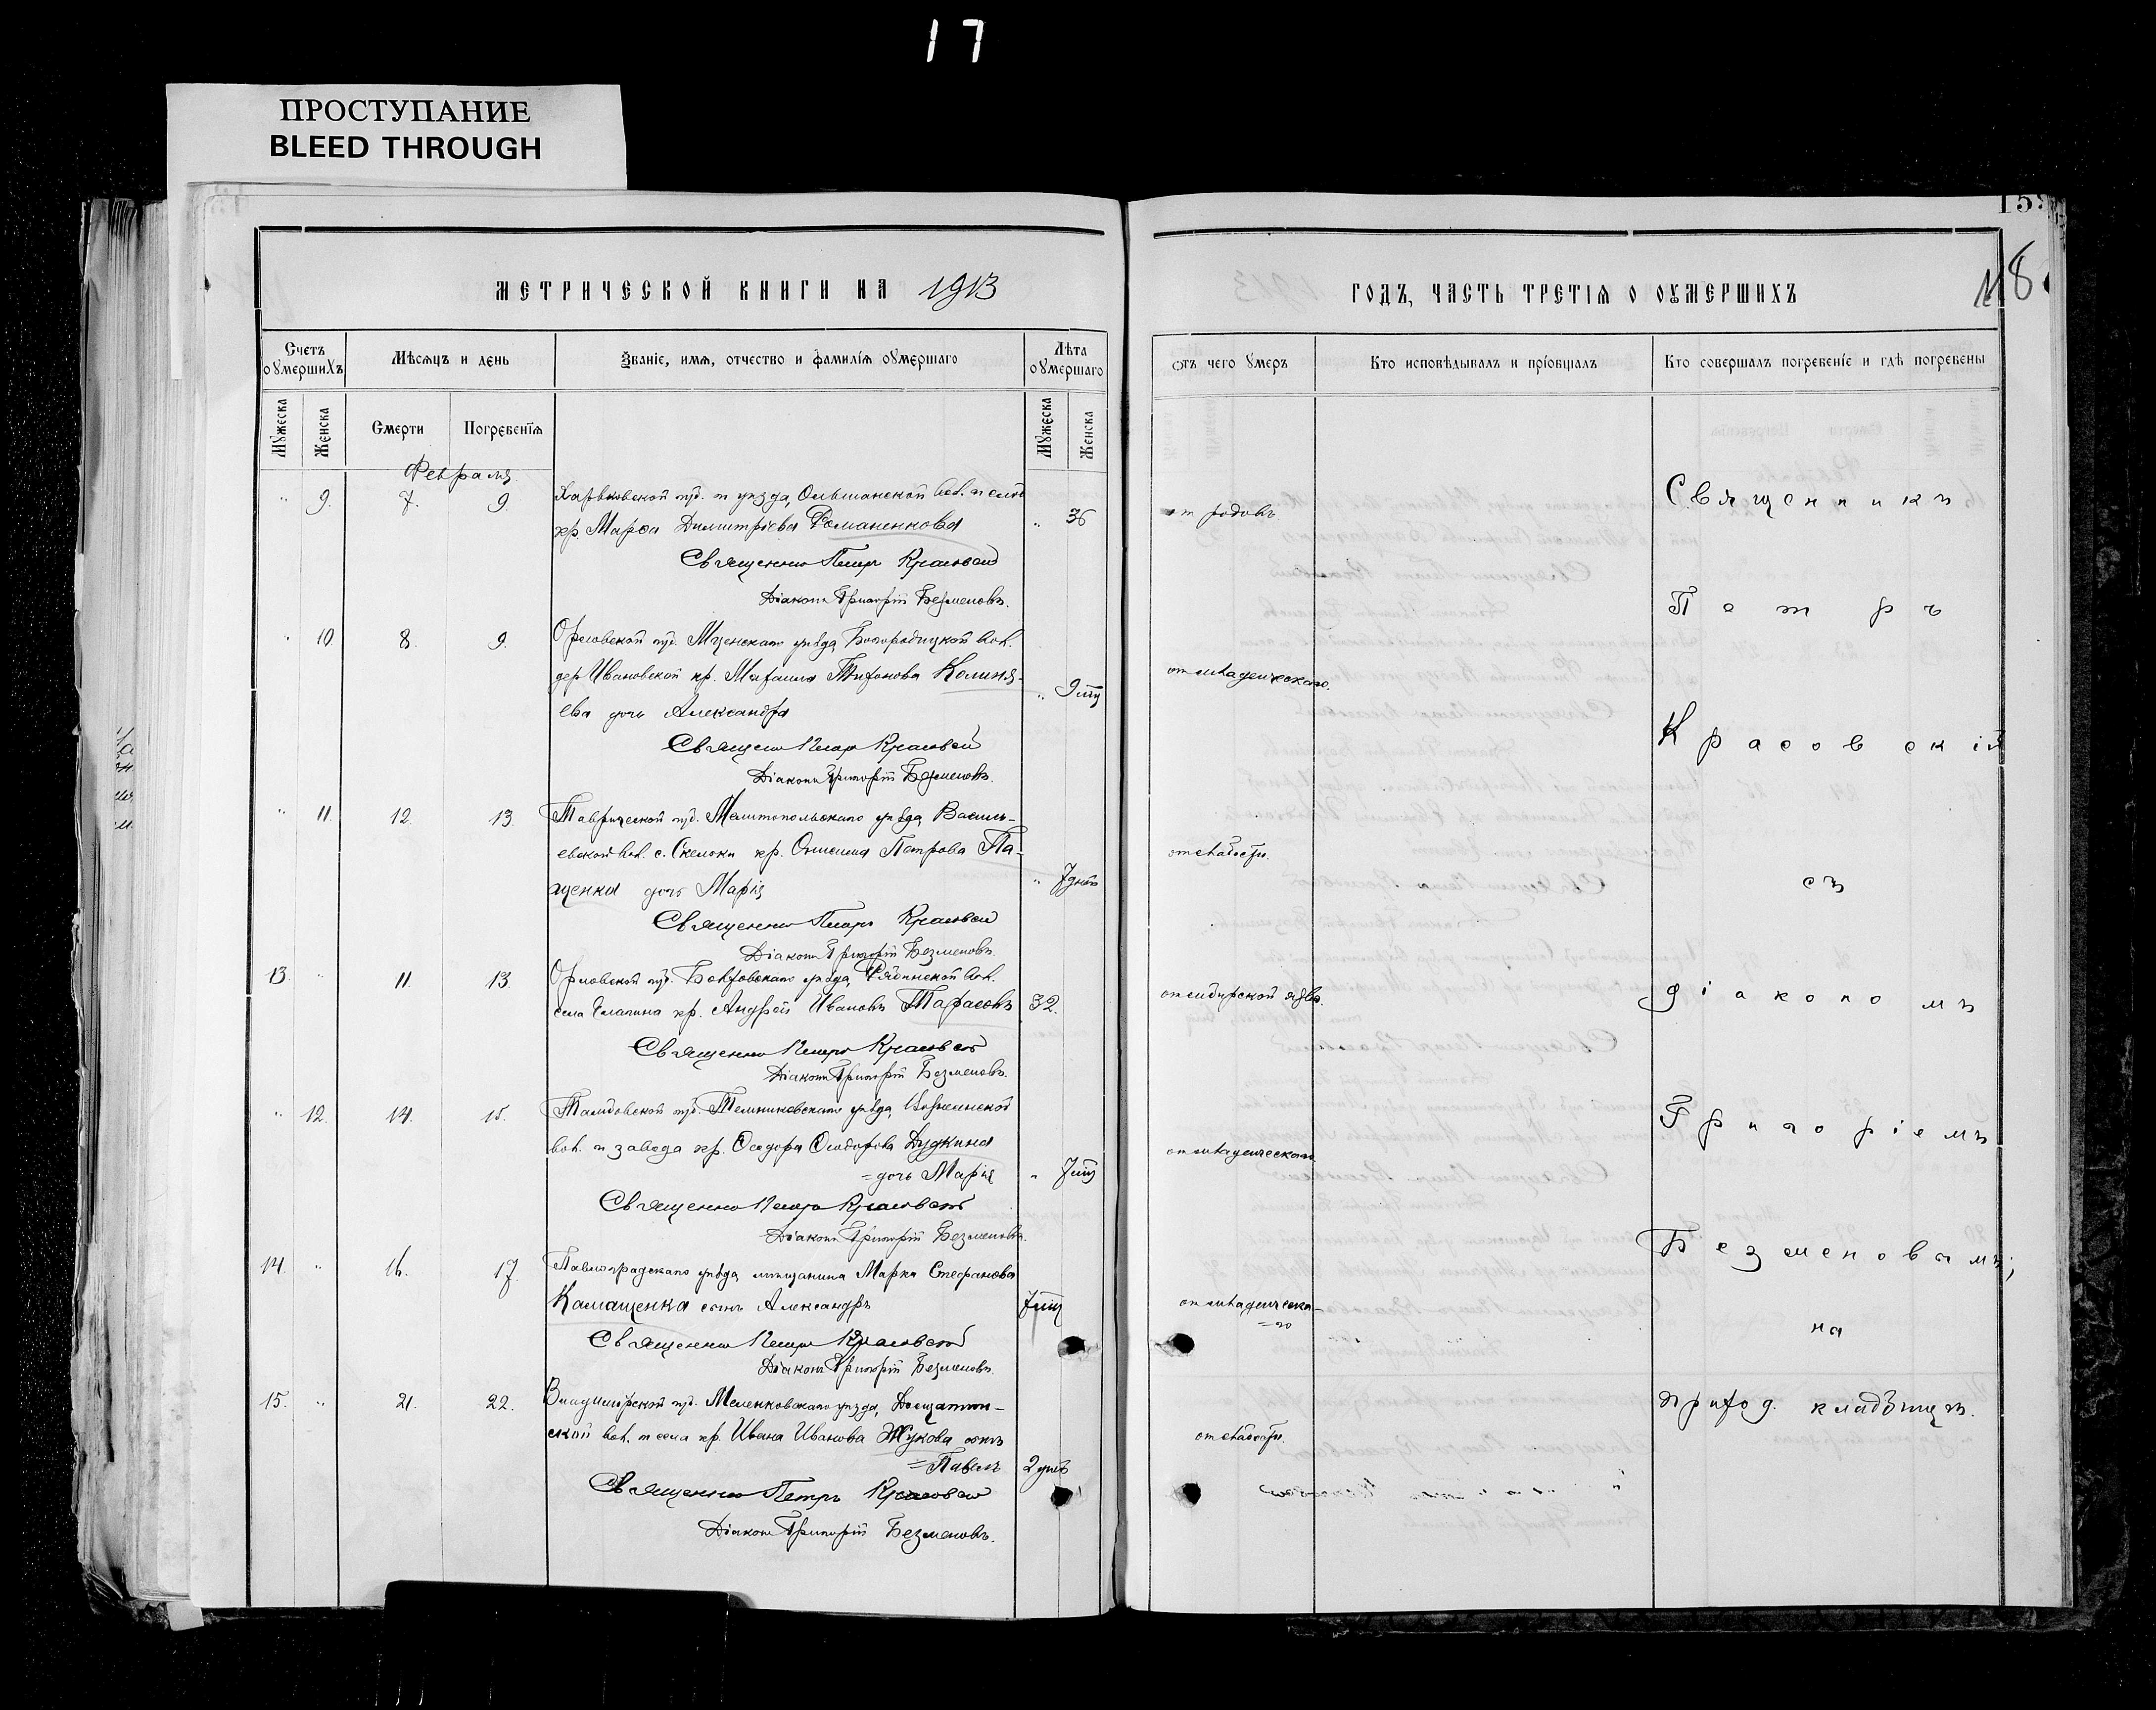 17
ПРОСТУПАНИЕ
BLEED THROUGH
МЕТРИЧЕСКОЙ КНИГИ НА 1913
Счетъ оумершихъ
Мѣсяцъ и день
Званіе, имя, отчество и фамилія оумершаго
Лѣта оумершаго
Мужеска
Женска
Смерти
Погребенія
Мужеска
Женска
Февраля
" 9. 7. 9. Харьковской губ. и уѣзда, Ольшанской вол. и села
кр. Марѳа Димитріева Романенкова " 36
Священникъ Петръ Красовскій
Діаконъ Григорій Безменовъ.
" 10 8. 9. Орловской губ. Мценскаго уѣзда Богородицкой вол.
дер. Ивановской кр. Тифонова
ева дочь Александра " 9 мц
Священникъ Петръ Красовскій
Діаконъ Григорій Безменовъ.
" 11. 12. 13. Таврической губ. Мелитопольскаго уѣзда, Василь-
евской вол. с. Скельки кр. Онисима Петрова Па-
щенка дочь Марія " 7 дней
Священникъ Петръ Красовскій
Діаконъ Григорій Безменовъ.
13. " 11. 13. Орловской губ. Болховскаго уѣзда, вол.
села кр. Андрей Ивановъ Тарасовъ 32.
Священникъ Петръ Красовскій
Діаконъ Григорій Безменовъ.
" 12. 14. 15. Тамбовской губ. Темниковскаго уѣзда,
вол. и завода кр. Ѳеодора Ѳеодорова Дудкина
=дочь Марія " 7 мц
Священникъ Петръ Красовскій
Діаконъ Григорій Безменовъ.
14. " 16. 17. Павлоградскаго уѣзда, мѣщанина Марка Стефанова
Камащенка сынъ Александръ 7 мц
Священникъ Петръ Красовскій
Діаконъ Григорій Безменовъ.
15. " 21. 22. Владимірской губ. Меленковскаго уѣзда, Дощатин-
ской вол. и села кр. Ивана Иванова Жукова сынъ
=Павелъ 2 дней
Священникъ Петръ Красовскій
Діаконъ Григорій Безменовъ.
ГОДЪ, ЧАСТЬ ТРЕТІЯ О ОУМЕРШИХЪ
118
Отъ чего умеръ
Кто исповѣдывалъ и пріобщалъ
Кто совершалъ погребеніе и гдѣ погребены
от родовъ
от младенческаго.
от слабости.
от сибирской язвы.
от младенческаго
от младенческа-
=го
от слабости.
Священникъ
Петръ
Красовскій
съ
діакономъ
Григоріемъ
Безменовымъ;
на
приход. кладбищѣ.